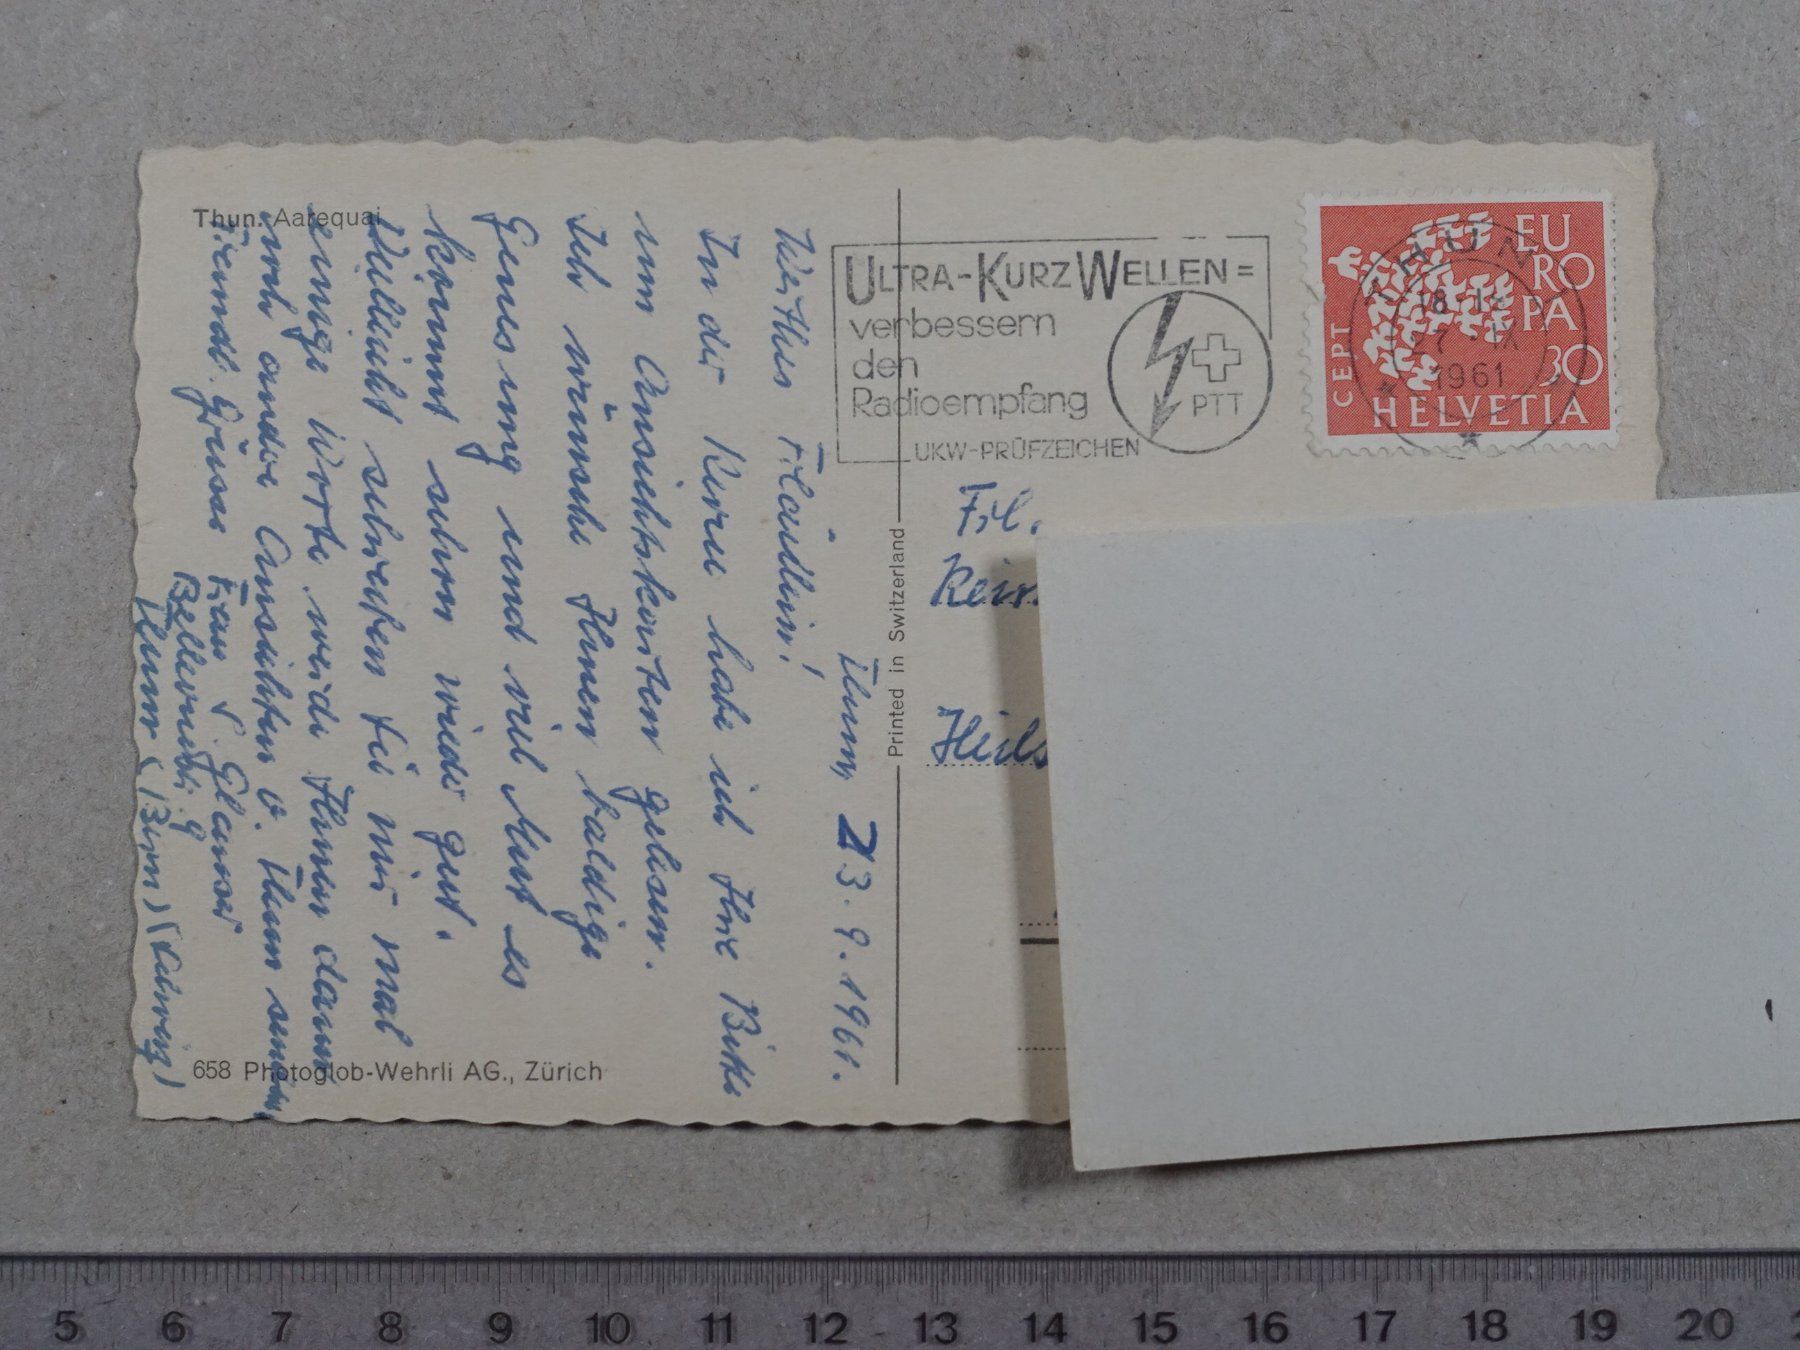 Thun. Aarequai
Thun, 23.9.1961.
Werthes Fräulein!
In der Revue habe ich Ihre Bitte
um Ansichtskarten gelesen.
Ich wünsche Ihnen baldige
Genesung und viel Mut es
kommt schon wieder gut.
Vielleicht schreiben Sie mir mal
einige Worte, werde Ihnen dann
noch andere Ansichten v. Thun senden
Freundl. Grüsse Frau S. Glauser
9
Thun (Bern) (Schweiz)
658 Photoglob-Wehrli AG., Zürich
Printed in Switzerland
ULTRA-KURZ WELLEN=
verbessern
den
Radioempfang
UKW-PRÜFZEICHEN
PTT
THUN
1961
EUROPA
30
CEPT
HELVETIA
Frl.
5 6 7 8 9 10 11 12 13 14 15 16 17 18 19 20